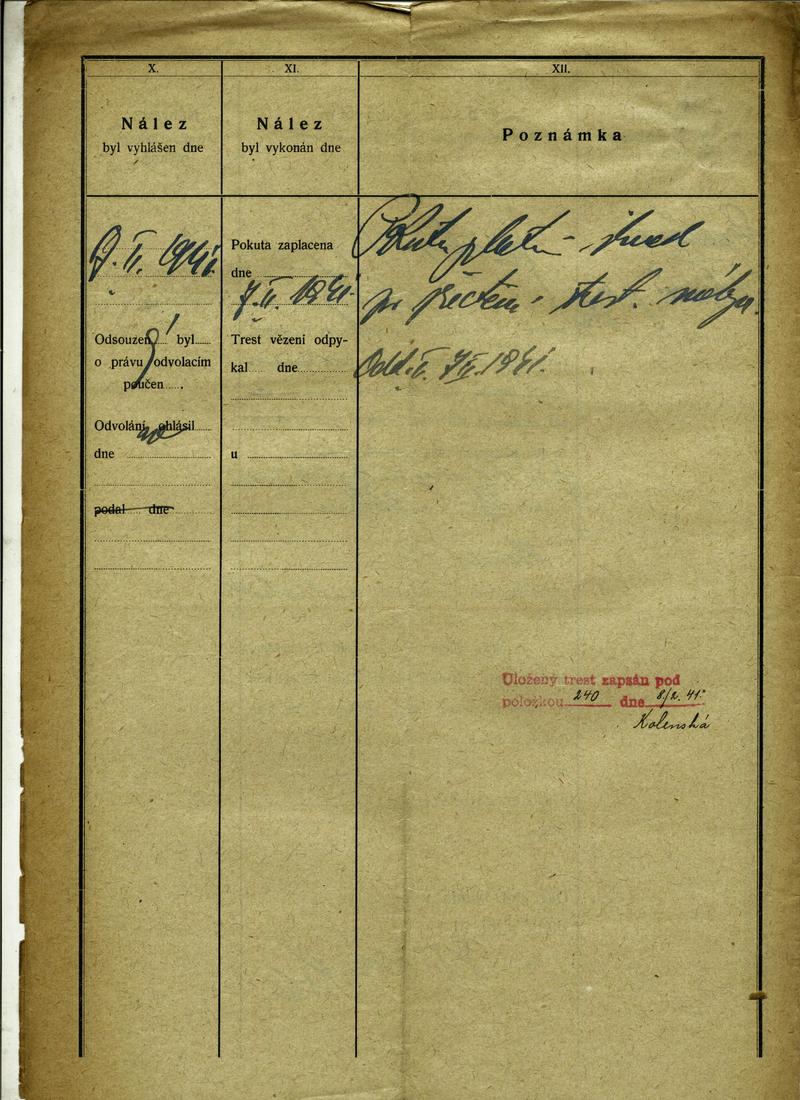 X.
Nález
byl vyhlášen dne
7. II. 1941.
Odsouzený byl
o právu odvolacím
poučen .
Odvolání ohlásil
ne
dne
podal dne
XI.
Nález
byl vykonán dne
Pokuta zaplacena
dne
7. II. 1941.
Trest vězení odpy-
kal dne
u
XII.
Poznámka
Pokutu platí ihned
po přečtení trest. nálezu.
Odd. I. 7/II. 1941.
Uložený trest zapsán pod
položkou 240 dne 8/2. 41.
Kolenská